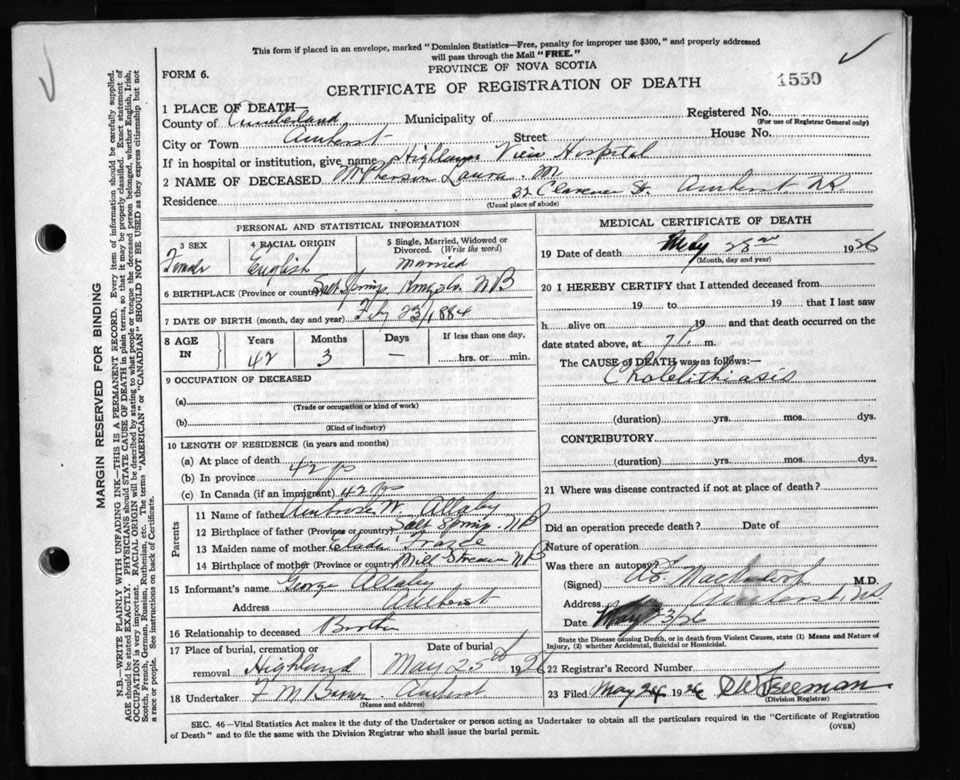 This form if placed in an envelope, marked "Dominion Statistics—Free, penalty for improper use $300," and properly addressed
will pass through the Mail "FREE."
FORM 6.
PROVINCE OF NOVA SCOTIA
CERTIFICATE OF REGISTRATION OF DEATH
1559
1 PLACE OF DEATH—
County of Cumberland Municipality of Registered No.
(For use of Registrar General only)
City or Town Amherst Street House No.
If in hospital or institution, give name Highland View Hospital
2 NAME OF DECEASED McPherson Laura M
Residence 32 Clarence St. Amherst N.S.
(Usual place of abode)
PERSONAL AND STATISTICAL INFORMATION
3 SEX Female
4 RACIAL ORIGIN English
5 Single, Married, Widowed or Divorced. (Write the word) Married
6 BIRTHPLACE (Province or country) Salt Springs Kings Co. NB
7 DATE OF BIRTH (month, day and year) 23/1884
8 AGE IN Years 42 Months 3 Days — If less than one day, hrs. or min.
9 OCCUPATION OF DECEASED
(a) (Trade or occupation or kind of work)
(b) (Kind of industry)
10 LENGTH OF RESIDENCE (in years and months)
(a) At place of death 42
(b) In province
(c) In Canada (if an immigrant) 42
Parents
11 Name of father Ambrose W. Allaby
12 Birthplace of father (Province or country) Salt Springs NB
13 Maiden name of mother
14 Birthplace of mother (Province or country) Mill Stream NB
15 Informant's name George Allaby
Address Amherst
16 Relationship to deceased Brother
17 Place of burial, cremation or removal Highland
Date of burial May 25th 1926
18 Undertaker F M Brown Amherst
(Name and address)
MEDICAL CERTIFICATE OF DEATH
19 Date of death May 23rd 1926
(Month, day and year)
20 I HEREBY CERTIFY that I attended deceased from
19 to 19 that I last saw
h alive on 19 and that death occurred on the
date stated above, at 7 P. m.
The CAUSE OF DEATH was as follows:—
Cholelithiasis
(duration) yrs. mos. dys.
CONTRIBUTORY
(duration) yrs. mos. dys.
21 Where was disease contracted if not at place of death?
Did an operation precede death? Date of
Nature of operation
Was there an autopsy?
(Signed) M.D.
Address Amherst, NS
Date May 23/26
State the Disease causing Death, or in death from Violent Causes, state (1) Means and Nature of
Injury, (2) whether Accidental, Suicidal or Homicidal.
22 Registrar's Record Number
23 Filed May 24 1926 Freeman
(Division Registrar)
SEC. 46—Vital Statistics Act makes it the duty of the Undertaker or person acting as Undertaker to obtain all the particulars required in the "Certificate of Registration
of Death" and to file the same with the Division Registrar who shall issue the burial permit.
(OVER)
MARGIN RESERVED FOR BINDING
N.B.—WRITE PLAINLY, WITH UNFADING INK—THIS IS A PERMANENT RECORD. Every item of information should be carefully supplied.
AGE should be stated EXACTLY. PHYSICIANS should STATE CAUSE OF DEATH in plain terms, so that it may be properly classified. Exact statement of
OCCUPATION is very important. RACIAL ORIGIN will be described by stating to what people or tongue the deceased person belonged, whether English, Irish,
Scotch, French, German, Russian, Ruthenian, etc. The terms "AMERICAN" or "CANADIAN" SHOULD NOT BE USED as they express citizenship but not
a race or people. See instructions on back of Certificate.